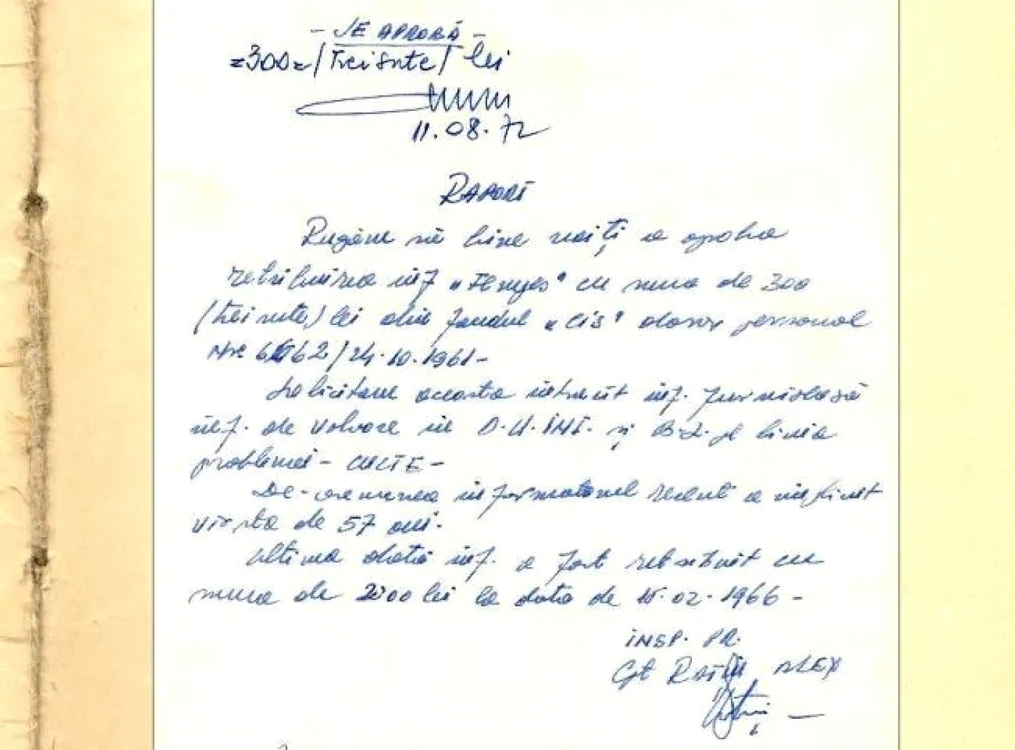 - SE APROBĂ -
=300=/treisute/ lei
11.08.72
RAPORT
Rugăm să bine voiți a aproba
retribuirea inf „Fenyes" cu suma de 300
/treisute/ lei din fondul „CIS" dosar personal
Nr. 6162/24.10.1961-
Solicităm aceasta întrucît inf. furnizează
inf. de valoare în D.U.I. și B.I. pe linia
problemei - CULTE -
De-asemenea informatorul recent a împlinit
vîrsta de 57 ani.
Ultima dată inf. a fost retribuit cu
suma de 200 lei la data de 15.02.1966 -
INSP. PR.
Cpt ALEX